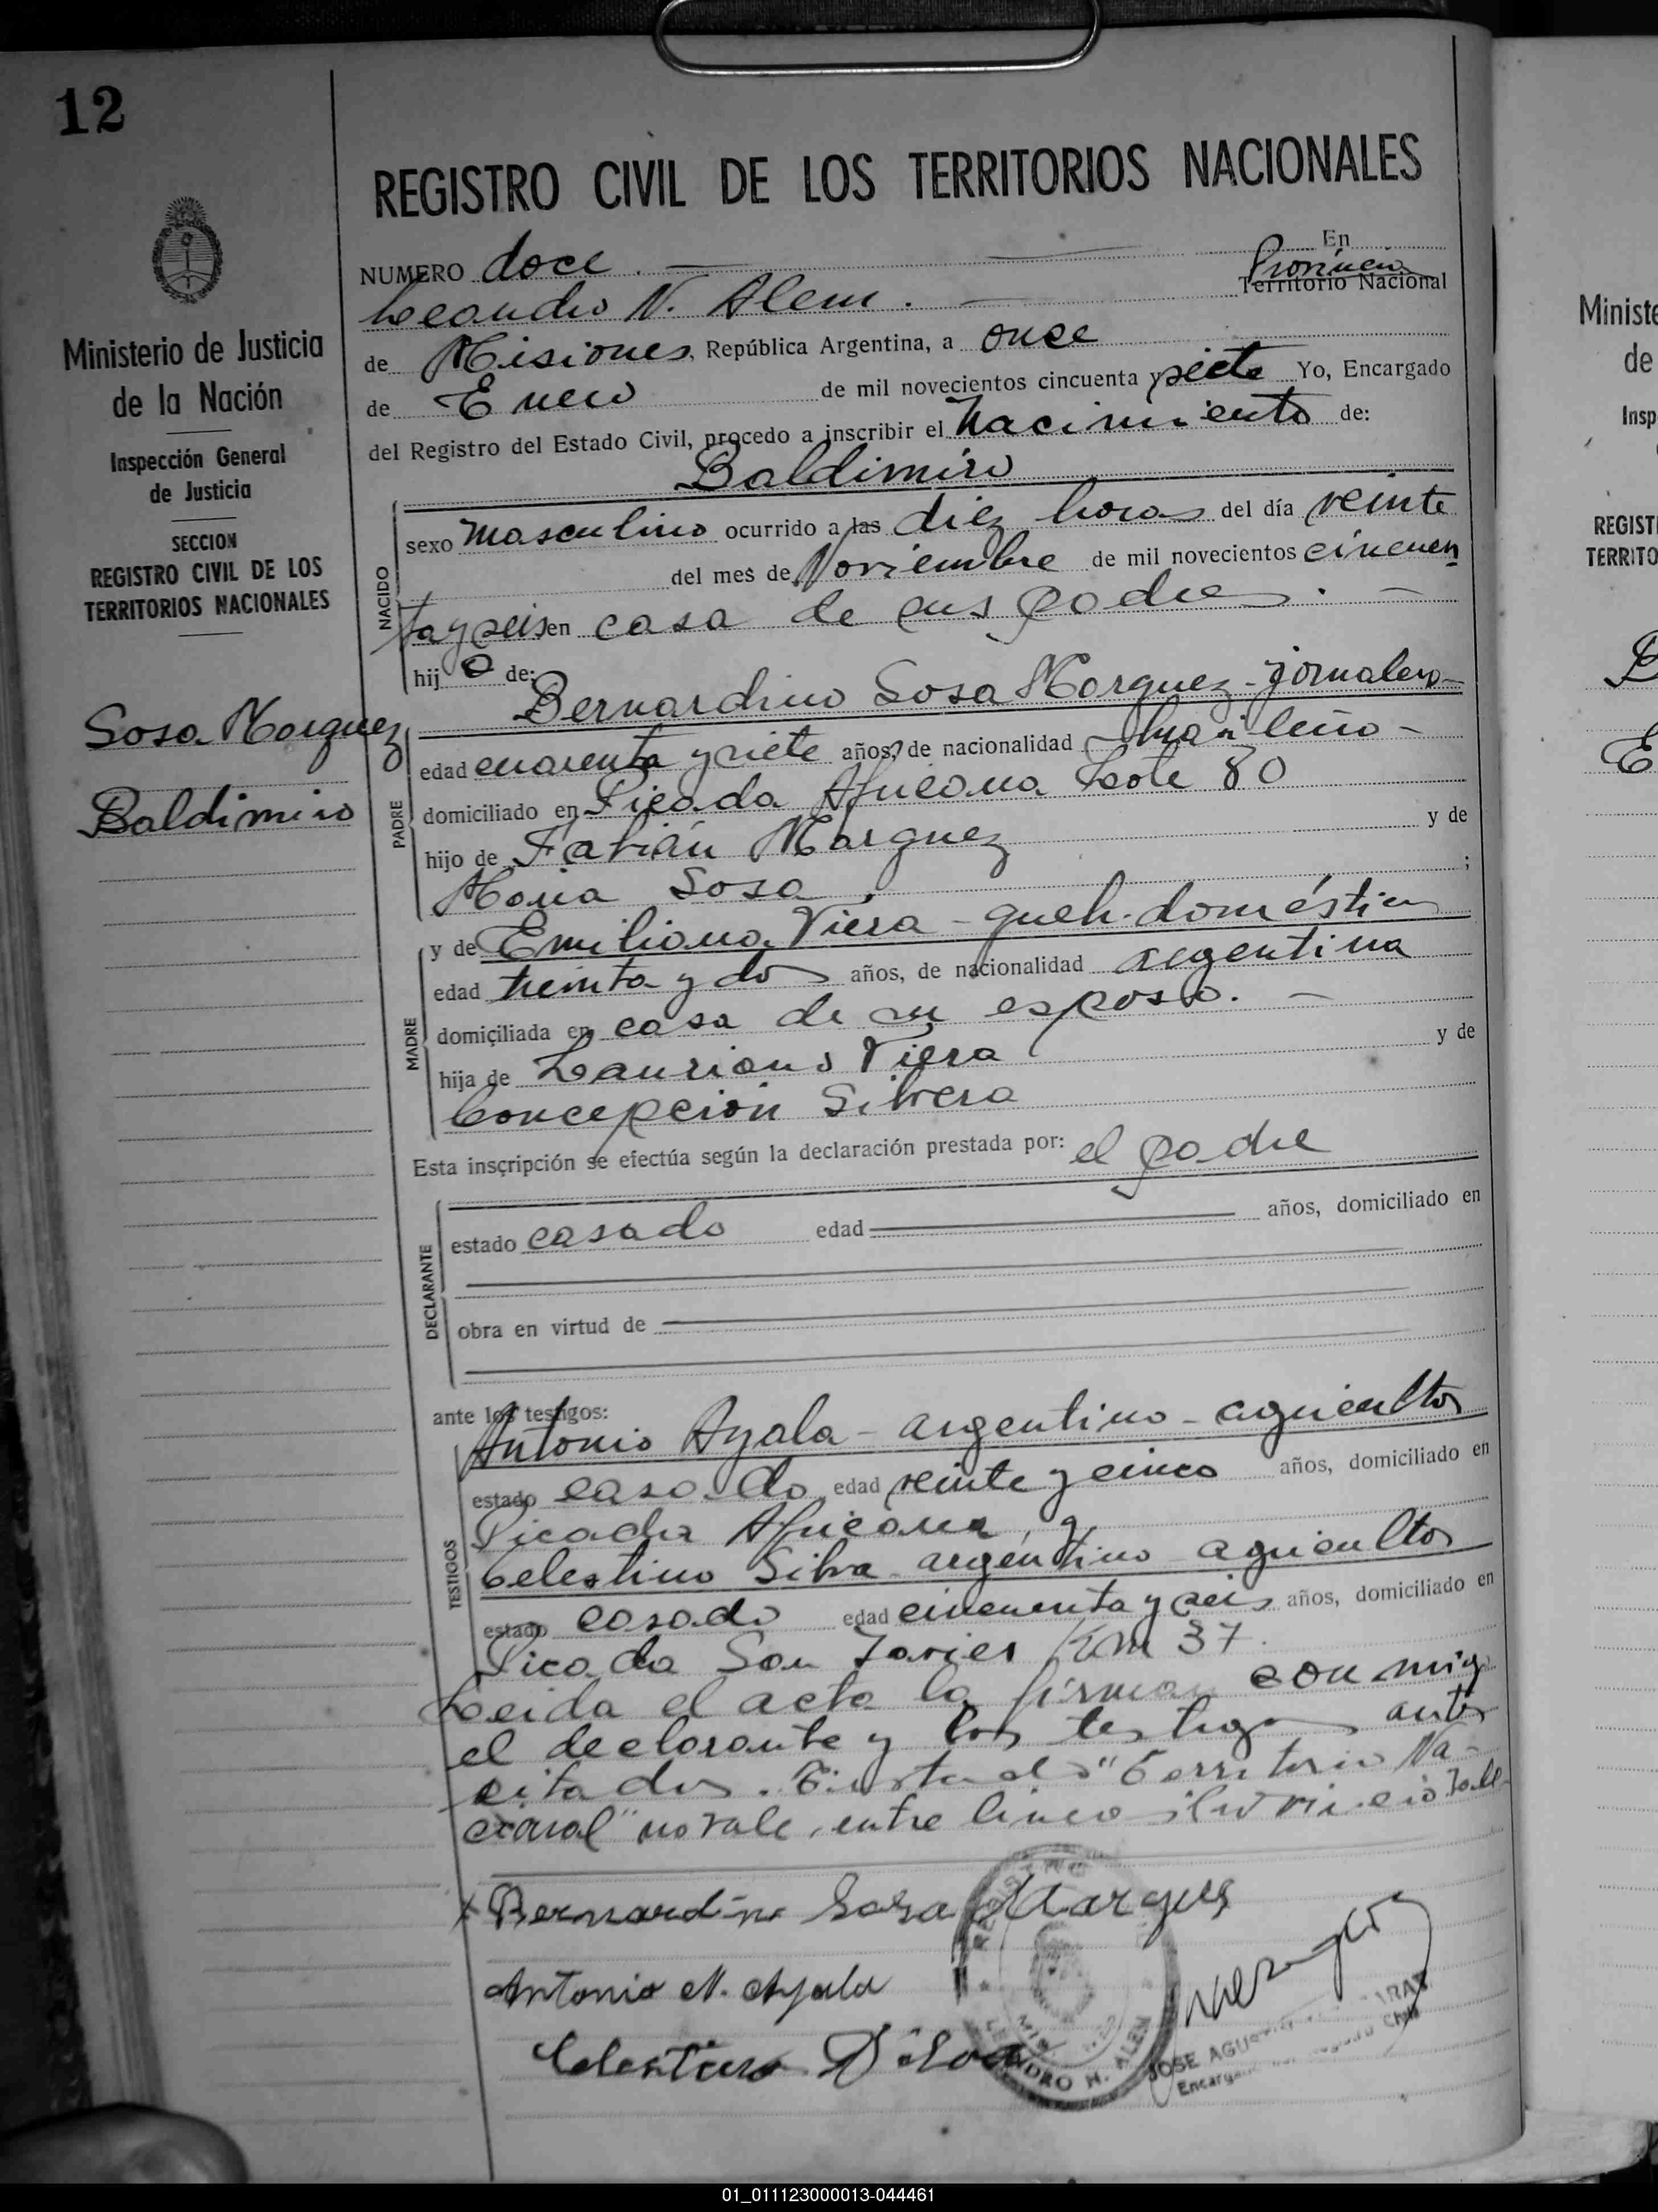 12
REGISTRO CIVIL DE LOS TERRITORIOS NACIONALES
NUMERO doce. En
Leandro N. Alem. Provincia Territorio Nacional
de Misiones, República Argentina, a once
de Enero de mil novecientos cincuenta y siete Yo, Encargado
del Registro del Estado Civil, procedo a inscribir el Nacimiento de:
Baldimiro
NACIDO
sexo masculino ocurrido a las diez horas del día veinte
del mes de Noviembre de mil novecientos cincuen
ta y seis en casa de sus padres.
hijo de:
Bernardino Sosa Marquez - jornalero
PADRE
edad cuarenta y siete años, de nacionalidad brasileño
domiciliado en Picada Africana Lote 80
hijo de Fabián Marquez y de
Maria Sosa ;
MADRE
y de Emiliana Viera - queh. doméstica
edad treinta y dos años, de nacionalidad argentina
domiciliada en casa de su esposo.
hija de Lauriano Viera y de
Concepción Silvera
Esta inscripción se efectúa según la declaración prestada por: el padre
DECLARANTE
estado casado edad años, domiciliado en
obra en virtud de
ante los testigos:
TESTIGOS
Antonio Ayala - argentino - agricultor
estado casado edad veinte y cinco años, domiciliado en
Picada Africana, y
Celestino Silva - argentino agricultor
estado casado edad cincuenta y seis años, domiciliado en
Picada San Javier Km 37.
Leida el acta la firman conmigo
el declarante y los testigos antes
citados. "Territorio Na-
cional" no vale, entre linea
Bernardino Sosa Marques
Antonio N. Ayala
Celestino Silva
LEANDRO N. ALEM
JOSE
Ministerio de Justicia
de la Nación
Inspección General
de Justicia
SECCION
REGISTRO CIVIL DE LOS
TERRITORIOS NACIONALES
Sosa Marquez
Baldimiro
Ministe
de
Insp
REGIST
TERRITO
01_011123000013-044461